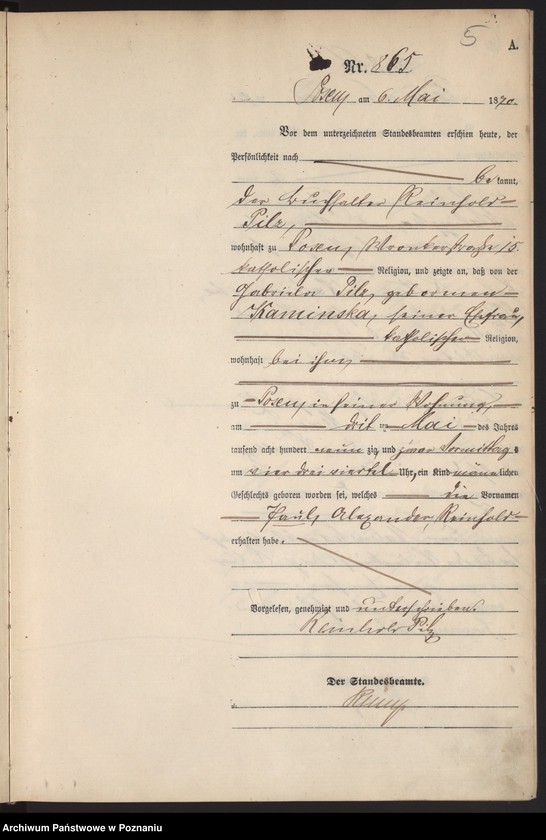 5
A.
Nr. 865
Posen am 6. Mai 1890.
Vor dem unterzeichneten Standesbeamten erschien heute, der
Persönlichkeit nach
be kannt,
der Buchhalter Reinhold
Pilz,
wohnhaft zu Posen, Wronkerstraße 15.
katholischer Religion, und zeigte an, daß von der
Gabriela Pilz, geborenen
Kaminska, seiner Ehefrau,
katholischer Religion,
wohnhaft bei ihm,
zu Posen, in seiner Wohnung,
am dritten Mai des Jahres
tausend acht hundert neun zig, und zwar Vormittag s
um vier drei viertel Uhr, ein Kind männ lichen
Geschlechts geboren worden sei, welches die Vornamen
Paul, Alexander, Reinhold
erhalten habe.
Vorgelesen, genehmigt und unterschrieben.
Reinhold Pilz
Der Standesbeamte.
Archiwum Państwowe w Poznaniu